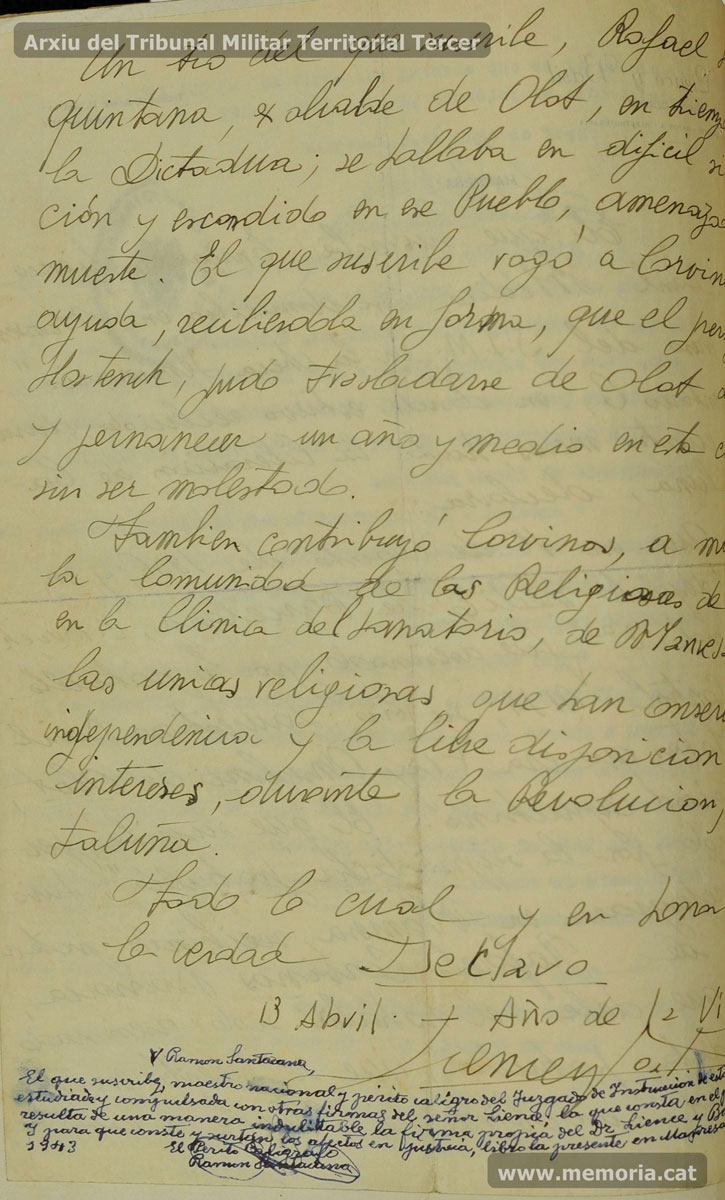 Arxiu del Tribunal Militar Territorial Tercer
Un tio del que suscribe, Rafael
quintana, ex alcalde de Olot, en tiemp
la Dictadura; se hallaba en dificil si
ción y escondido en ese Pueblo, amenaza
muerte. El que suscribe rogó a Corvin
ayuda, recibiendola en forma, que el per
Hostench, pudo trasladarse de Olot a
y permanecer un año y medio en esta c
sin ser molestado.
Tambien contribuyó Corvinos, a
la Comunidad de las Religiosas de
en la Clinica del Sanatorio, de Manres
las unicas religiosas que han conser
independencia y la libre disposicion
intereses, durante la Revolucion,
taluña.
Todo lo cual y en honor
la verdad Declaro
13 Abril. Año de la Vi
V Ramon Santacana,
El que suscribe, maestro nacional y perito caligrafo del Juzgado de Instrucción de esta
estudiada y compulsada con otras firmas del señor Lience, la que consta en el
resulta de una manera indubitable la firma propia del Dr Lience y
Y para que conste y surtan los efectos en justicia, libro la presente en Manresa
1943 El Perito Caligrafo
Ramon Santacana
www.memoria.cat